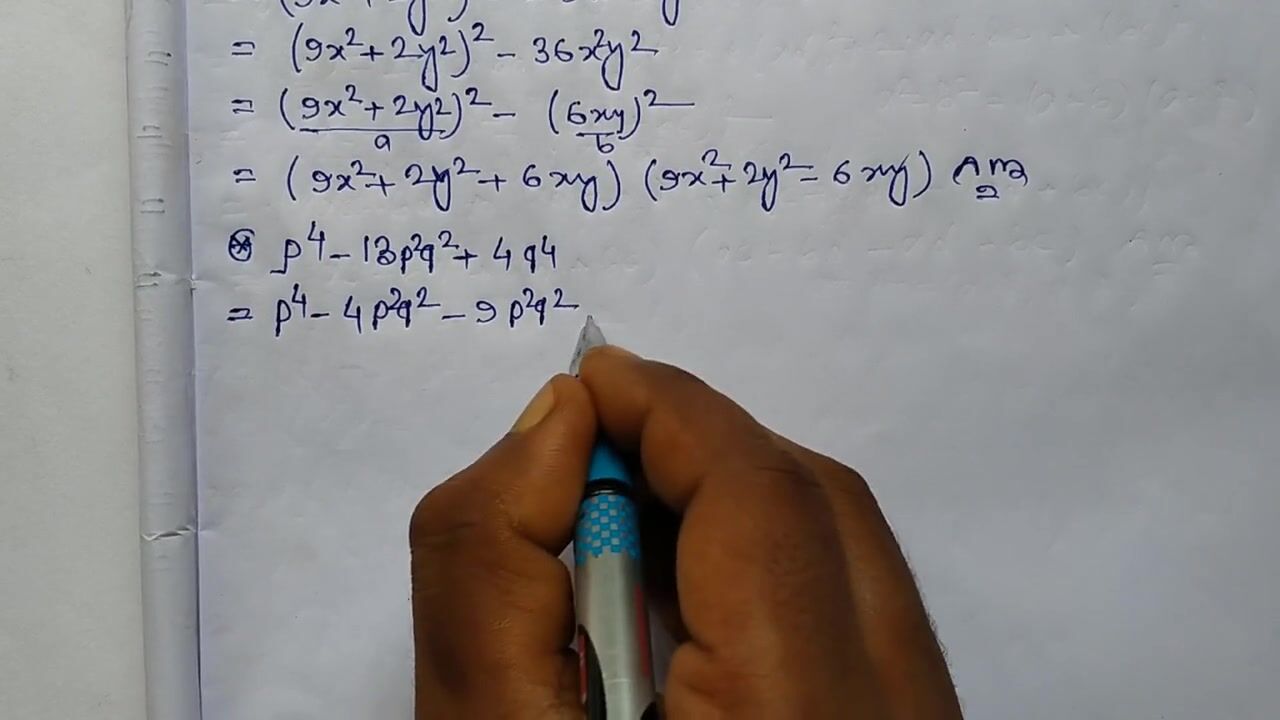 = (9x²+2y²)² - 36x²y²
= (9x²+2y²)² - (6xy)²
a b
= (9x²+2y²+6xy) (9x²+2y²-6xy) Ans
p⁴ - 13p²q² + 4q⁴
= p⁴ - 4p²q² - 9p²q²